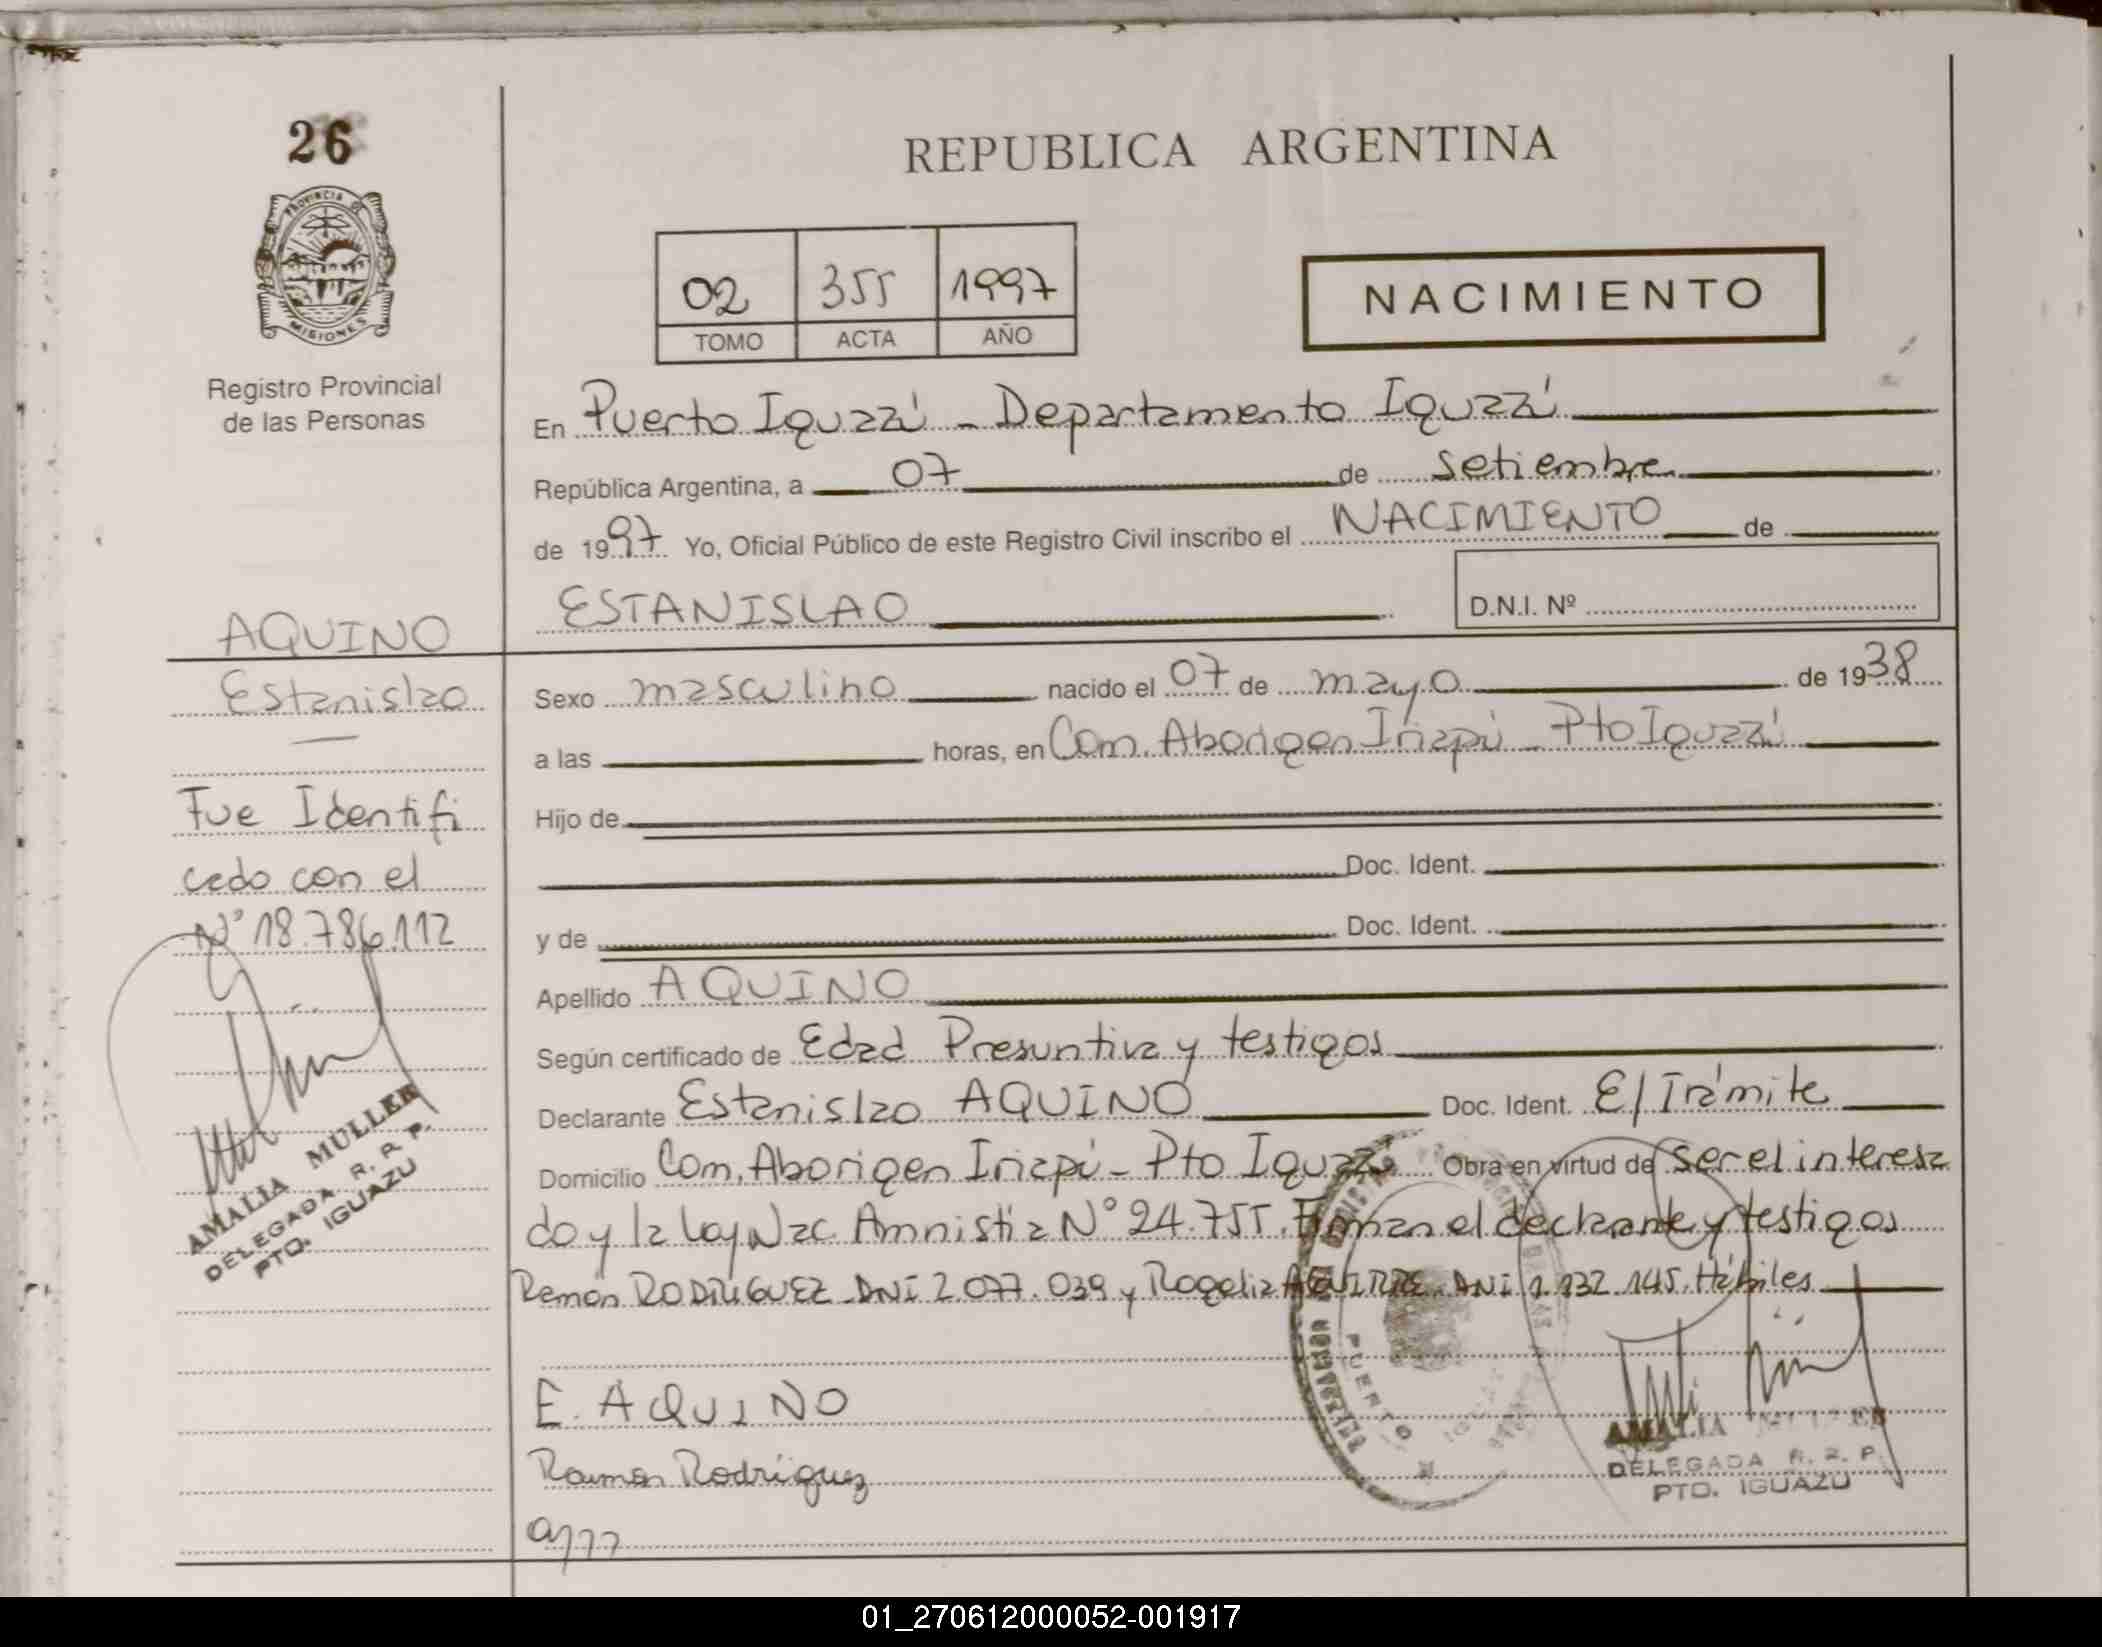 26
PROVINCIA DE
MISIONES
Registro Provincial
de las Personas
AQUINO
Estanislao
Fue Identifi
cado con el
N° 18.786.112
AMALIA MULLER
DELEGADA R. R. P.
PTO. IGUAZU
REPUBLICA ARGENTINA
02 355 1997
TOMO ACTA AÑO
NACIMIENTO
En Puerto Iguazú - Departamento Iguazú
República Argentina, a 07 de setiembre
de 1997 Yo, Oficial Público de este Registro Civil inscribo el NACIMIENTO de
ESTANISLAO D.N.I. Nº
Sexo masculino nacido el 07 de mayo de 1938
a las horas, en Com. Aborigen Iriapú - Pto Iguazú
Hijo de
Doc. Ident.
y de Doc. Ident.
Apellido AQUINO
Según certificado de Edad Presuntiva y testigos
Declarante Estanislao AQUINO Doc. Ident. E/Trámite
Domicilio Com. Aborigen Iriapú - Pto Iguazú Obra en virtud de ser el interesa
do y la Ley Nac Amnistia N° 24.755. Firman el declarante y testigos
Ramón RODRIGUEZ - DNI 2.077.039 y Rogelia AGUIRRE - DNI 1.132.145. Hábiles
E. AQUINO
Ramon Rodriguez
PUERTO
AMALIA MULLER
DELEGADA R. R. P.
PTO. IGUAZU
01_270612000052-001917